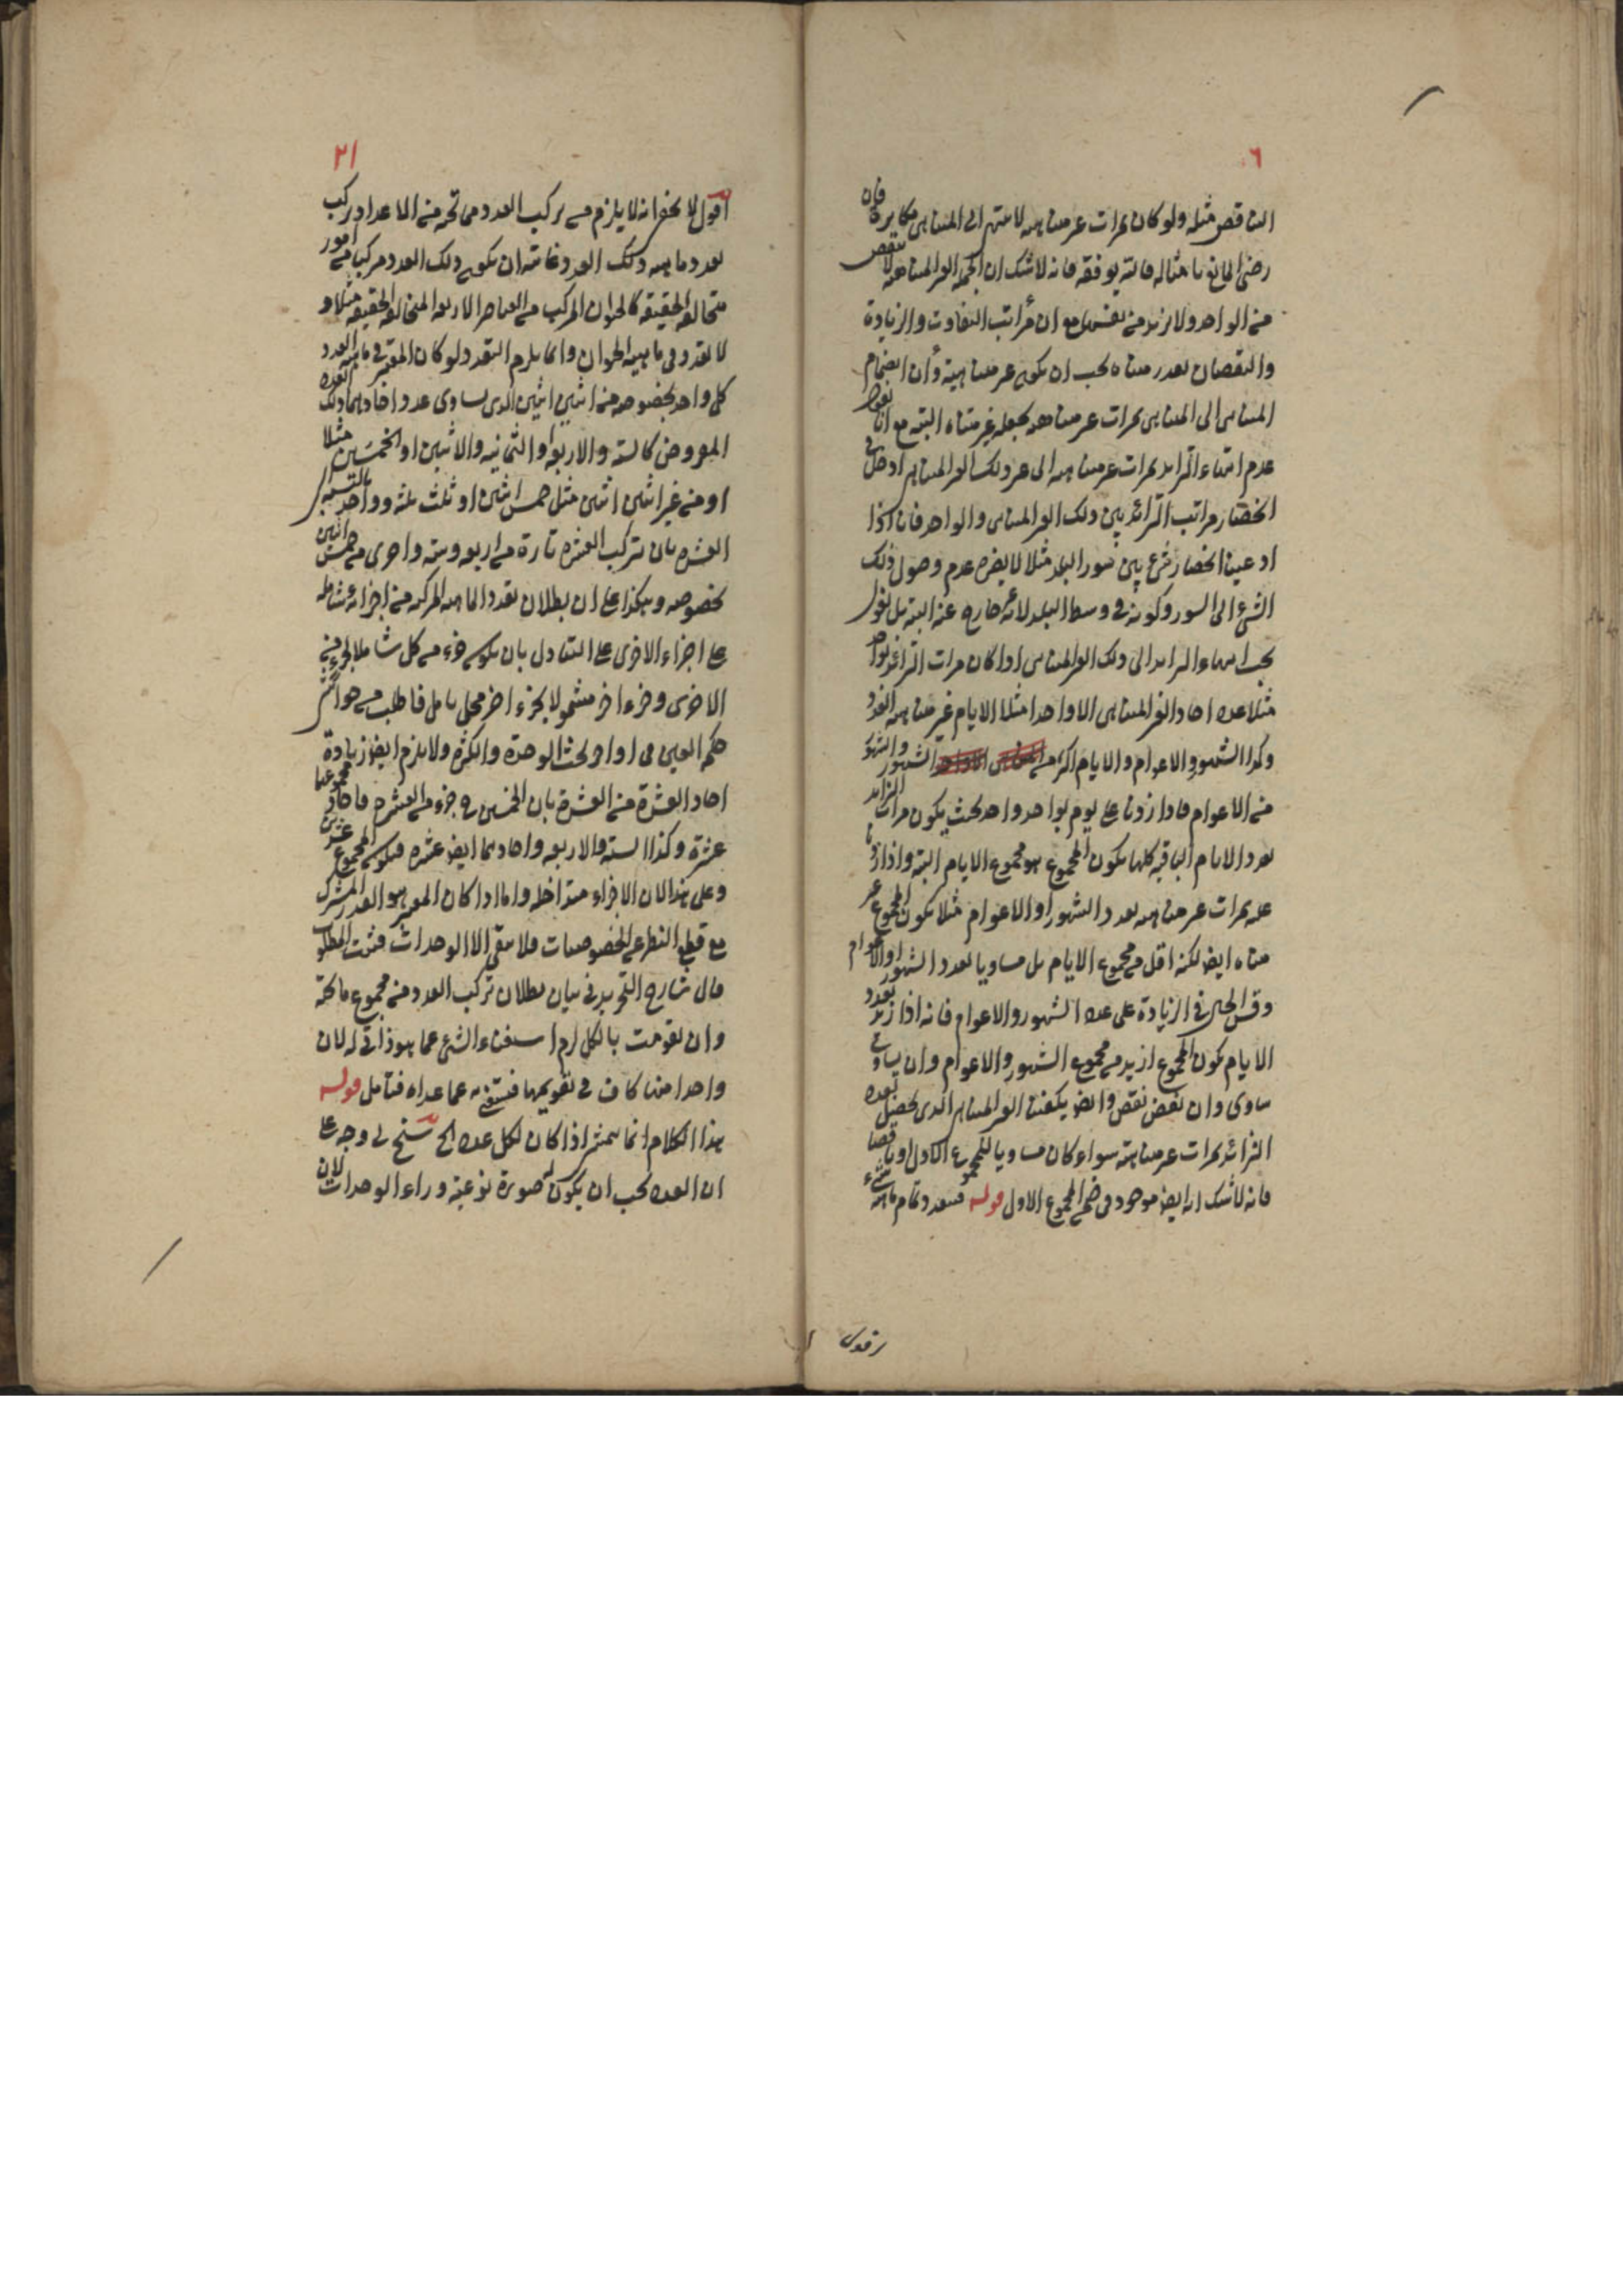 ٦
الناقص مثله ولو كان بمرات غير متناهيه لا ينتهي الى المتناهي مكابرة فان
رضي الخالي بامثاله فالله يوفقه فانه لا شك ان الجمله الغير المتناهيه لا ينقص
من الواحد ولا يزيد من نفسها مع ان مراتب التفاوت والزيادة
والنقصان بعدد متناه يجب ان يكون غير متناهية وأن انضمام
المتناهي الى المتناهي بمرات غير متناهيه يجعله غير متناه البته مع انا نقول
عدم انتهاء الزايد بمرات غير متناهيه الى غير ذلك الغير المتناهي ادخل في
انحصار مراتب الزائد بين ذلك الغير المتناهي والواحد فان اذا
ادعينا انحصار شئ بين سور البلد مثلا لا يضره عدم وصول ذلك
الشئ الى السور وكونه في وسط البلد لانه غير خارج عنه البته بل نقول
يجب انتهاء الزايد الى ذلك الغير المتناهي اذا كان مرات الزائد بواحد
مثلا عدد احاد الغير المتناهي الا واحدا مثلا الايام غير متناهيه العدد
وكذا الشهور والاعوام والايام اكثر من الشهور والشهور
من الاعوام فاذا زدنا على يوم بواحد واحد بحيث يكون مرات الزايد
بعدد الايام الباقيه كلها يكون المجموع هو مجموع الايام البته واذا زدنا
عليه بمرات غير متناهيه بعدد الشهور او الاعوام مثلا يكون المجموع غير
متناه ايض لكنه اقل من مجموع الايام بل مساويا لعدد الشهور او الاعوام
وقس الحال في الزيادة على عدد الشهور والاعوام فانه اذا زيد بعدد
الايام يكون المجموع ازيد من مجموع الشهور والاعوام وان ساوى
ساوى وان نقص نقص وايض يكفينا الغير المتناهي الذي يحصل بعده
الزائد بمرات غير متناهيه سواء كان مساويا للمجموع الاول او ناقصا
فانه لا شك انه ايض موجود في ضمن المجموع الاول قوله فيتعدد تمام ماهية شئ
اقول
٢١
اقول لا يخفى انه لا يلزم من تركب العدد مما تحته من الاعداد تركب
تعدد ماهيه ذلك العدد غايته ان يكون ذلك العدد مركبا من امور
متخالفه الحقيقة كالحيوان المركب من العناصر الاربعه المتخالفه الحقيقه مثلا و
لا تعدد في ماهيه الحيوان وانما يلزم التعدد لو كان المعتبر في ماهيه العدد
كل واحد بخصوصه من اثنين اثنين الذي يساوي عدد احادهما ذلك العدد
المعروض كالسته والاربعه او الثمانيه والاثنين او الخمسين مثلا
او من غير اثنين اثنين مثل خمس اثنين او ثلث ثلثه وواحد بالنسبه الى
العشره بان تركب العشره تارة من اربعه وسته واخرى من خمس اثنين
بخصوصه وهكذا على ان بطلان تعدد الماهيه المركبه من اجزاء شامله
على اجزاء الاخرى على التبادل بان يكون جزء من كل شاملا لجزء من
الاخرى وجزء اخر مشمولا بجزء اخر محل تامل فاطلب من حواشي شرح
حكمه العين في اواخر بحث الوحدة والكثرة ولا يلزم ايض زيادة
احاد العشرة من العشرة بان الخمسين جزء من العشرة فاحاد مجموعهما
عشرة وكذا السته والاربعه واحادهما ايض عشره فيكون المجموع عشرين
وعلى هذا لان الاجزاء متداخله واما اذا كان المعتبر هو القدر المشترك
مع قطع النظر عن الخصوصيات فلا يبقى الا الوحدات فثبت المطلوب
قال شارح التجريد في بيان بطلان تركب العدد من مجموع ما تحته
وان تقومت بالكل لزم استغناء الشئ عما هو ذاتي له لان
واحدا منها كاف في تقويمها فيستغنى به عما عداه فتامل قوله
هذا الكلام انما يتمشى اذا كان لكل عدد الخ سنح لي وجه على
ان العدد يجب ان يكون له صورة نوعية وراء الوحدات لان